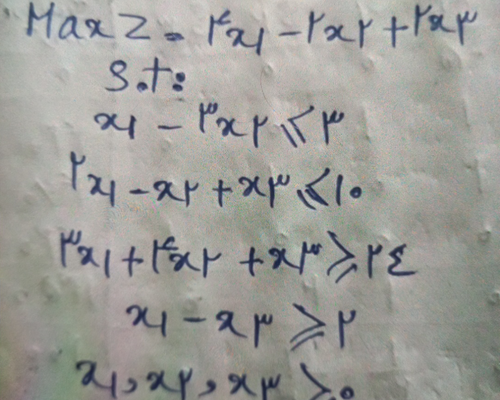 Max Z = ۴x۱ - ۲x۲ + ۲x۳
S.t:
x۱ - ۳x۲ ⩽ ۳
۲x۱ - x۲ + x۳ ⩽ ۱۰
۳x۱ + ۴x۲ + x۳ ⩾ ۲٤
x۱ - x۳ ⩾ ۲
x۱, x۲, x۳ ⩾ ۰